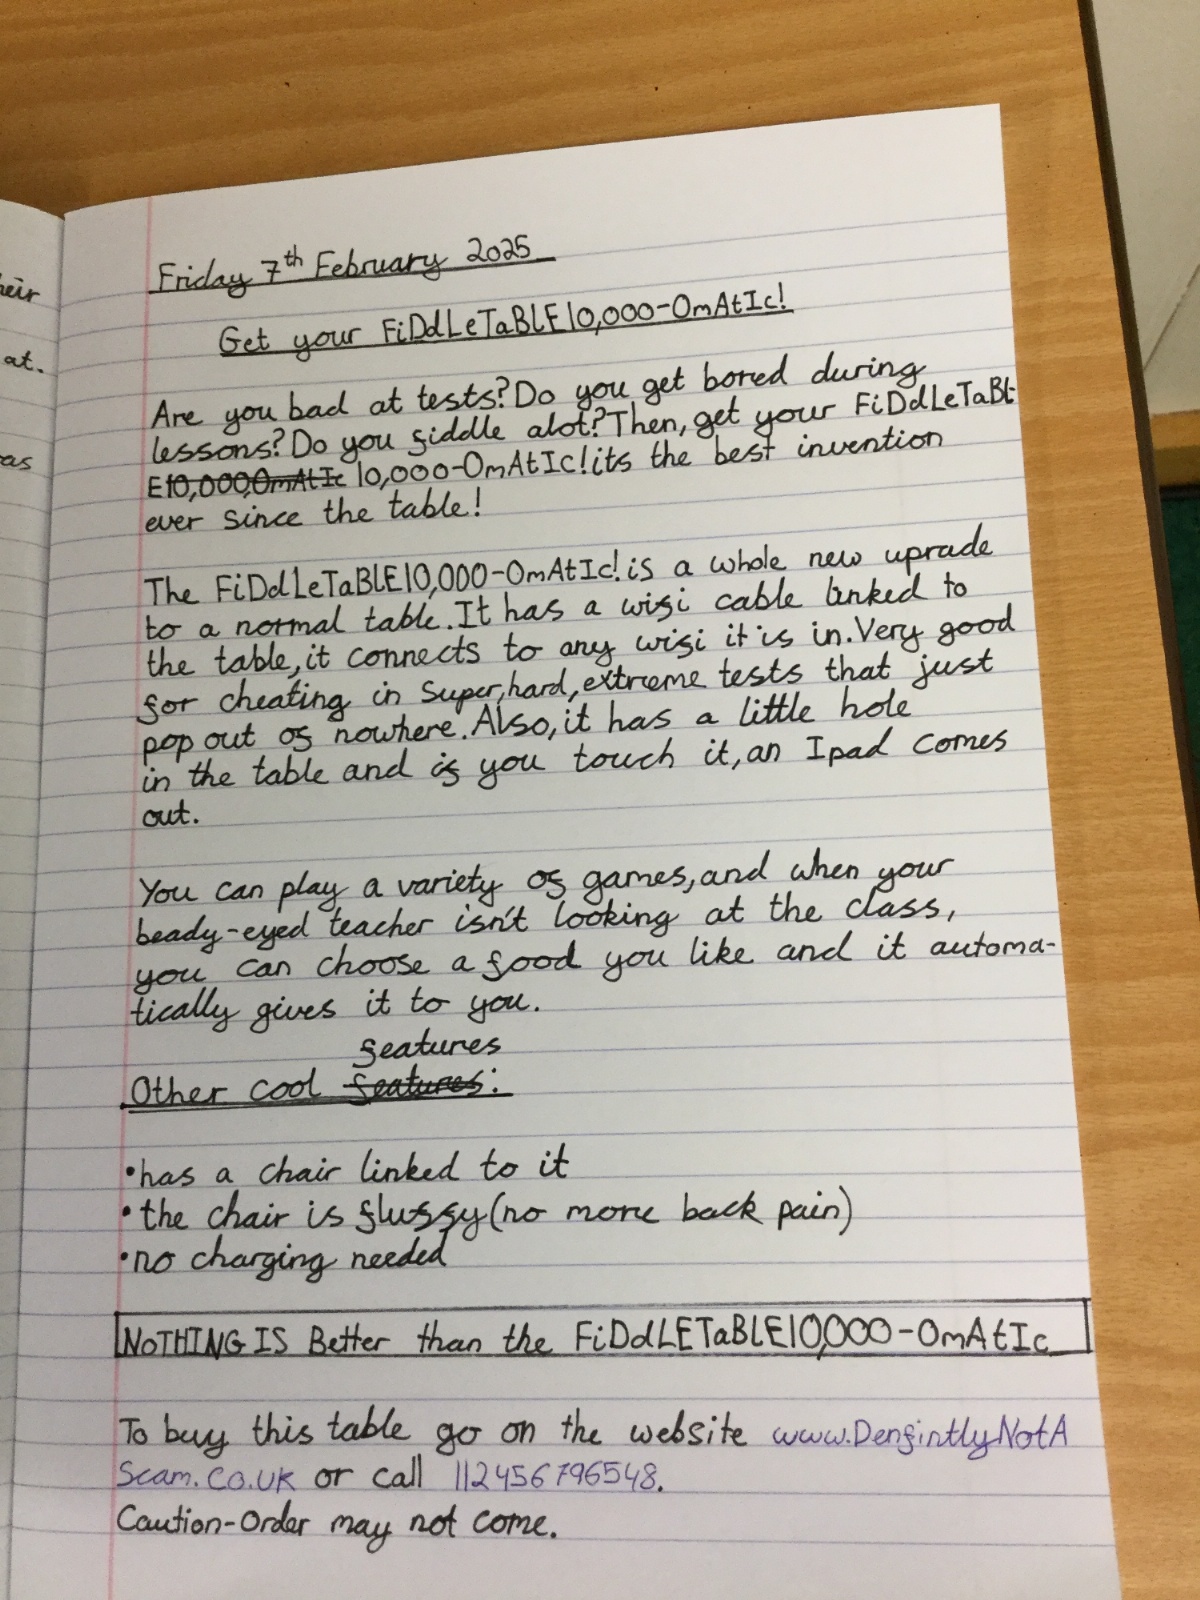 Friday 7th February 2025
Get your FiDdLeTaBLE10,000-OmAtIc!
Are you bad at tests? Do you get bored during
lessons? Do you fiddle alot? Then, get your FiDdLeTaBL
E10,000,OmAtIc 10,000-OmAtIc! its the best invention
ever since the table!
The FiDdLeTaBLE10,000-OmAtIc! is a whole new uprade
to a normal table. It has a wifi cable linked to
the table, it connects to any wifi it is in. Very good
for cheating in Super, hard, extreme tests that just
pop out of nowhere. Also, it has a little hole
in the table and if you touch it, an Ipad comes
out.
You can play a variety of games, and when your
beady-eyed teacher isn't looking at the class,
you can choose a food you like and it automa-
tically gives it to you.
features
Other cool features:
•has a chair linked to it
•the chair is fluffy (no more back pain)
•no charging needed
NoTHING IS Better than the FiDdLETaBLE10,000-OmAtIc
To buy this table go on the website www.DenfintlyNotA
Scam.Co.UK or call 112456796548.
Caution-Order may not come.
heir
at.
as